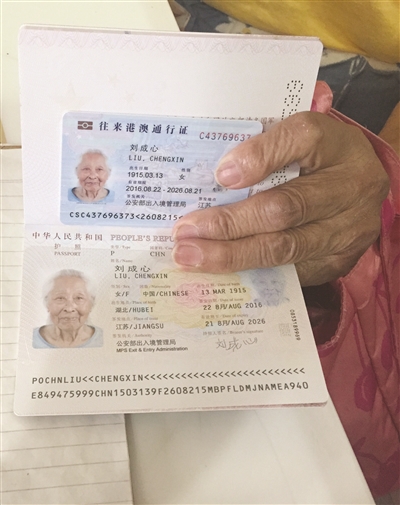 往来港澳通行证 C43769637
刘成心
LIU, CHENGXIN
1915.03.13 女
2016.08.22 - 2026.08.21
公安部出入境管理局 江苏
CSC437696373<2608215
中华人民共和国 PEOPLE'S REPU
护照 P CHN
PASSPORT
刘成心
LIU, CHENGXIN
女/F 中国/CHINESE 13 MAR 1915
湖北/HUBEI 22 8月/AUG 2016
江苏/JIANGSU 21 8月/AUG 2026
公安部出入境管理局
MPS Exit & Entry Administration
刘成心
POCHNLIU<<CHENGXIN<<<<<<<<<<<<<<<<<<<<<<<<<<
E849475999CHN1503139F2608215MBPFLDMJNAMEA940